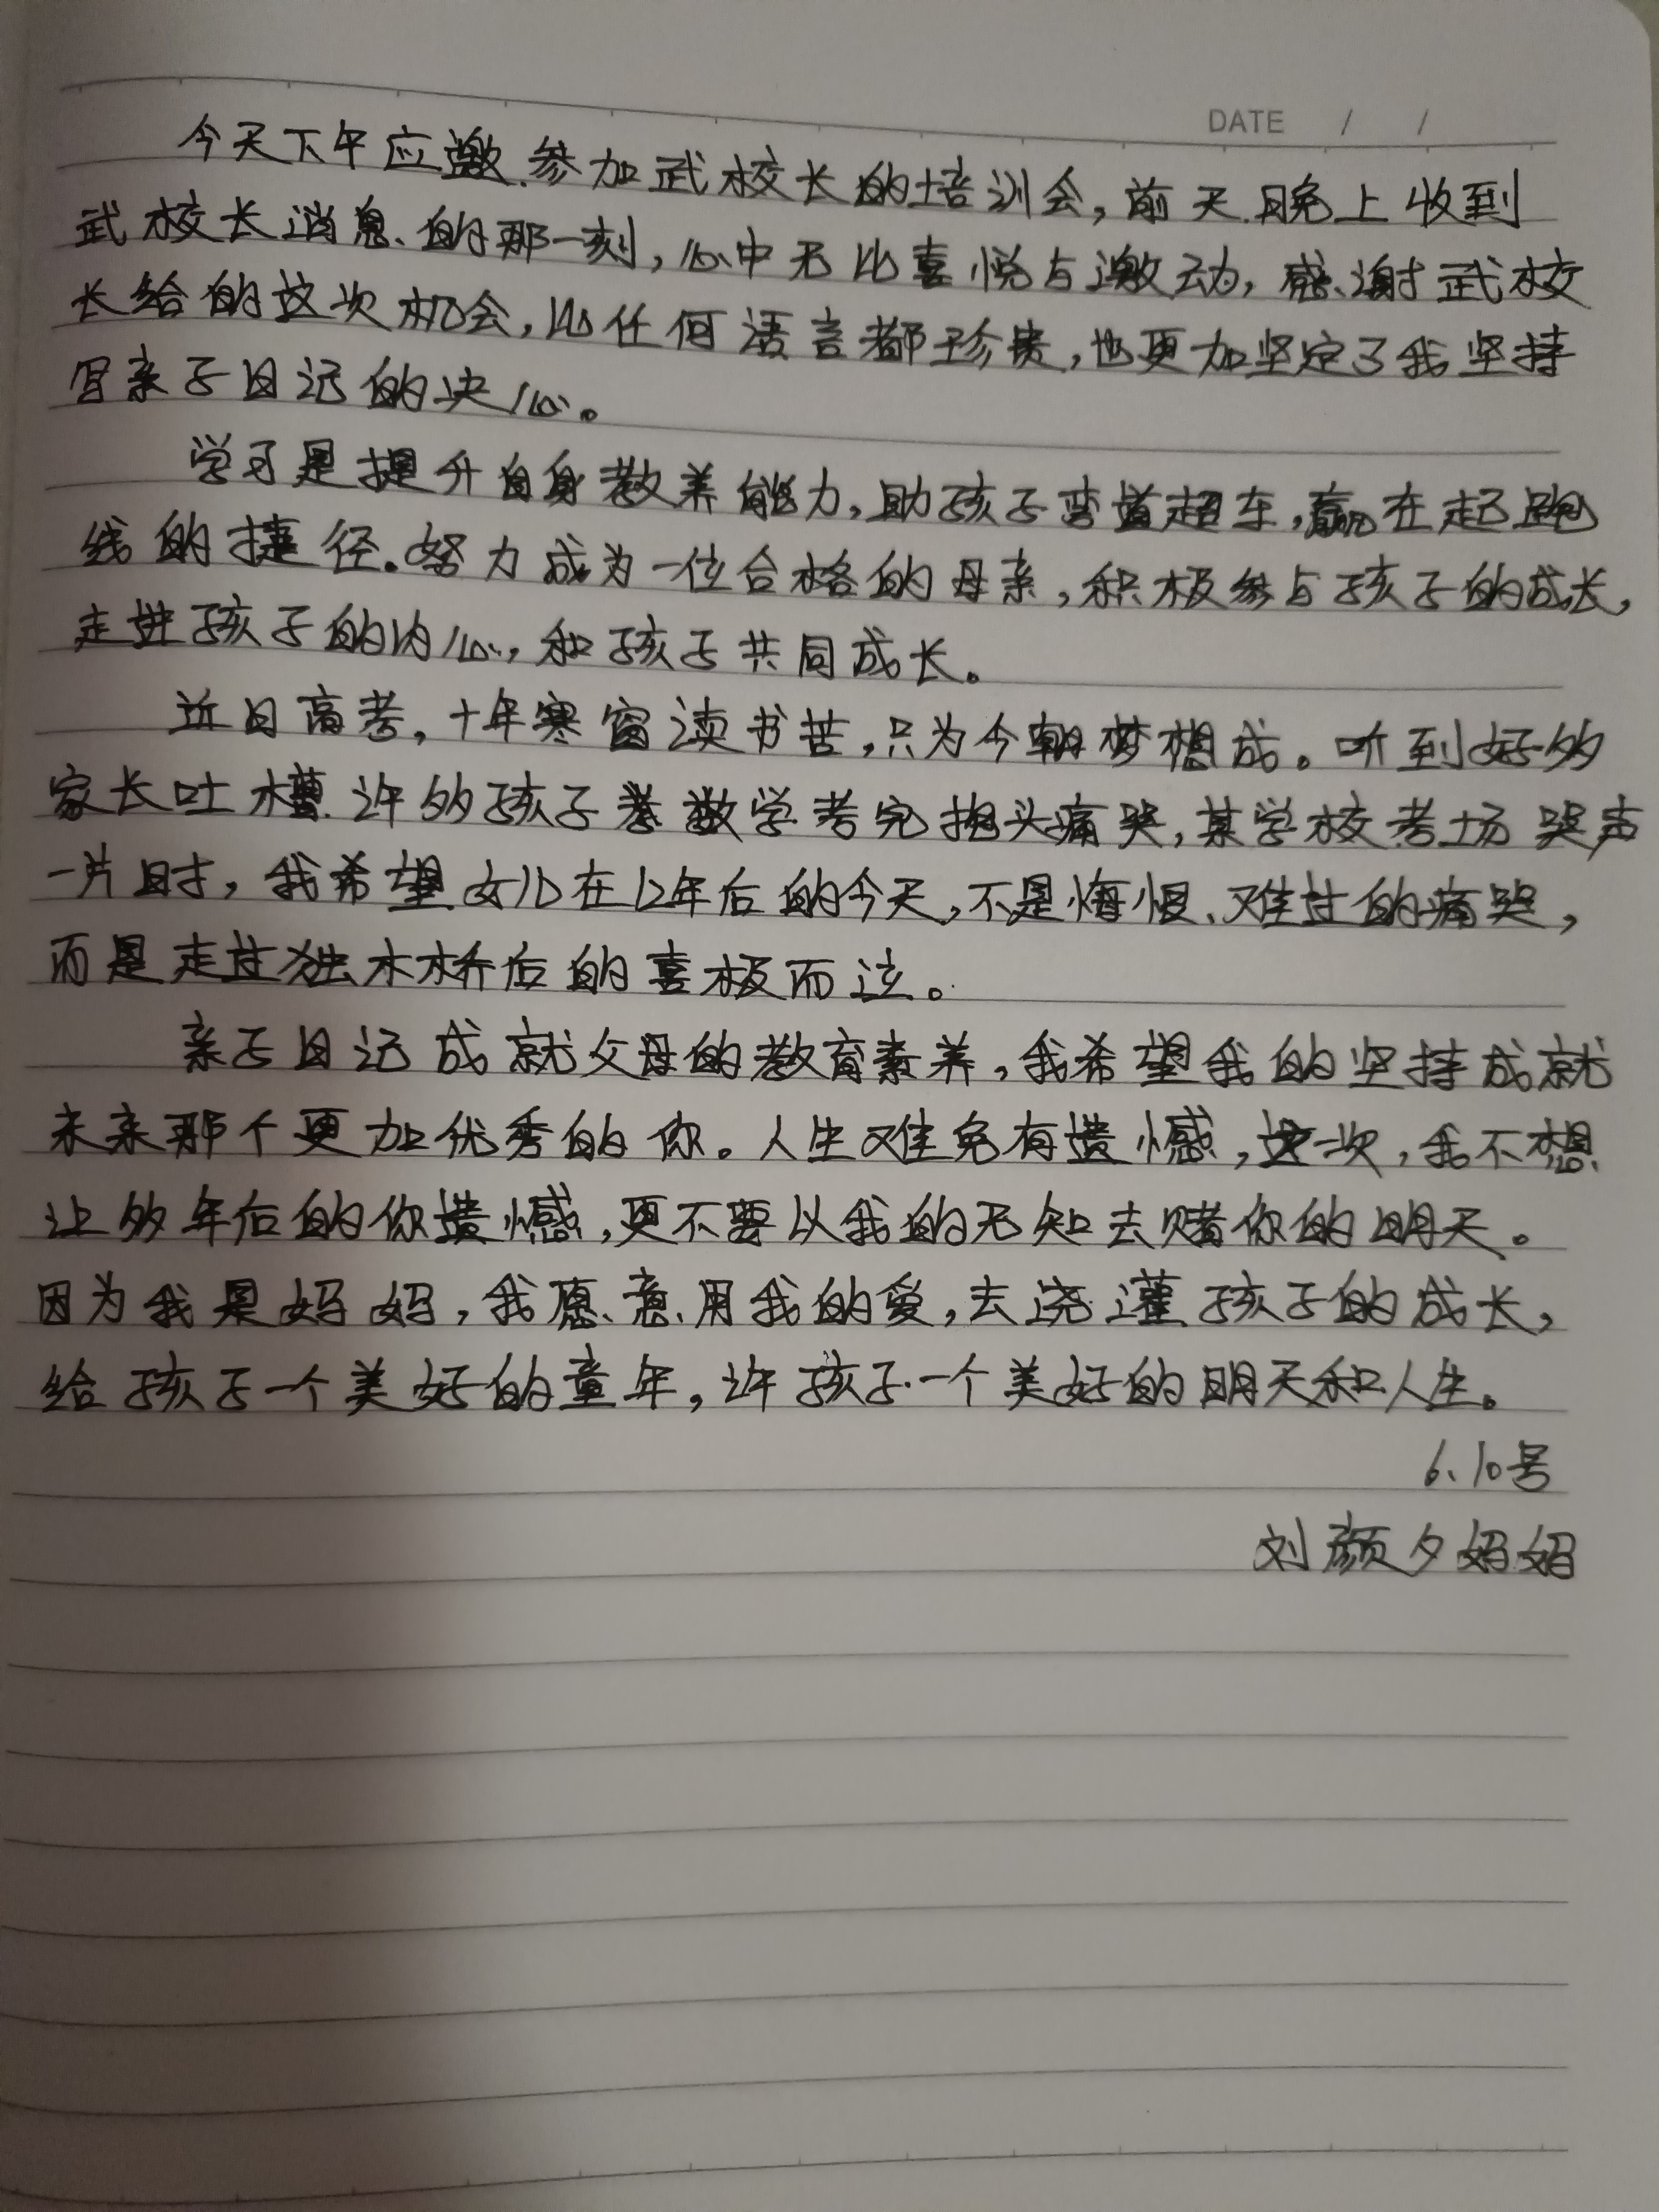 DATE / /
今天下午应邀参加武校长的培训会，前天晚上收到
武校长消息的那一刻，心中无比喜悦与激动，感谢武校
长给的这次机会，比任何语言都珍贵，也更加坚定了我坚持
写亲子日记的决心。
学习是提升自身教养能力，助孩子弯道超车，赢在起跑
线的捷径。努力成为一位合格的母亲，积极参与孩子的成长，
走进孩子的内心，和孩子共同成长。
近日高考，十年寒窗读书苦，只为今朝梦想成。听到好多
家长吐槽许多孩子数学考完抱头痛哭，某学校考场哭声
一片时，我希望女儿在12年后的今天，不是悔恨、难过的痛哭，
而是走过独木桥后的喜极而泣。
亲子日记成就父母的教育素养，我希望我的坚持成就
未来那个更加优秀的你。人生难免有遗憾，这一次，我不想
让多年后的你遗憾，更不要以我的无知去赌你的明天。
因为我是妈妈，我愿意用我的爱，去浇灌孩子的成长，
给孩子一个美好的童年，许孩子一个美好的明天和人生。
6、10号
刘颜夕妈妈